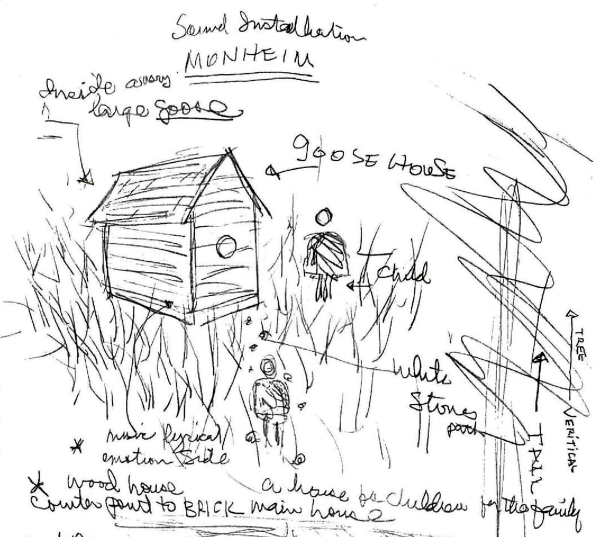 Sound Installation
MONHEIM
Inside a very
large goose
GOOSE HOUSE
child
white
stones
path
TREE
VERITICAL
TALL
* music lyrical
emotion side
* wood house
counter point to BRICK main house
a house for children for the family